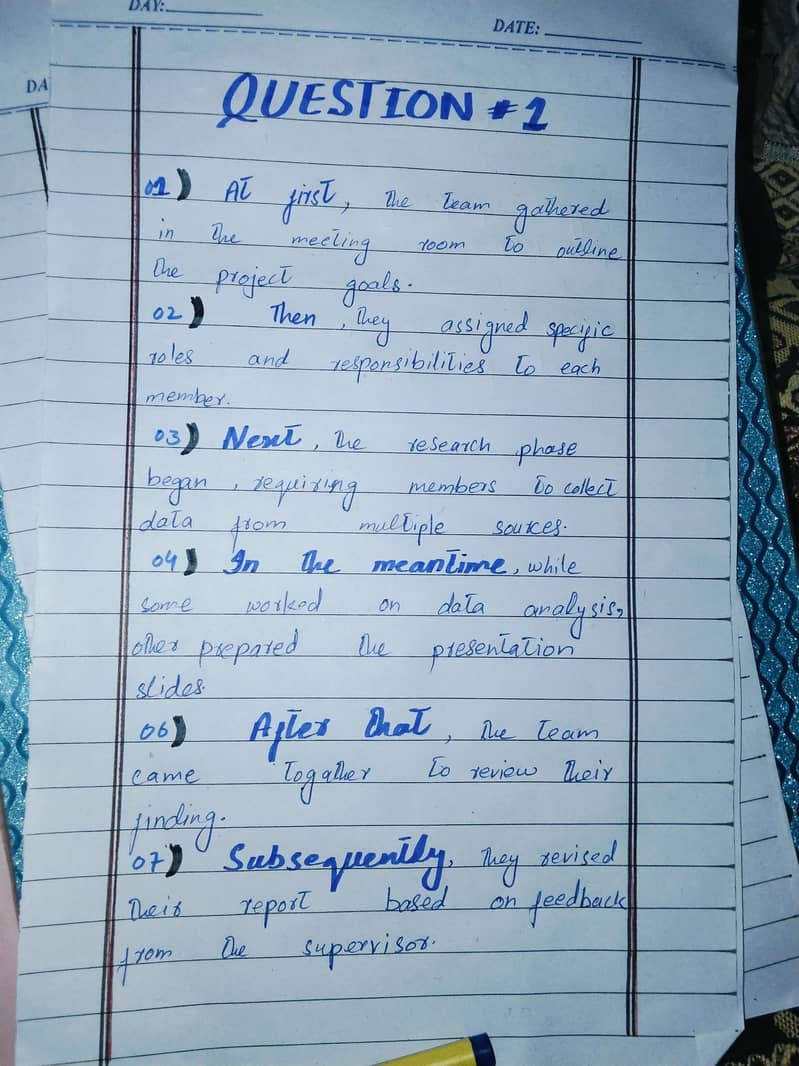 DAY:
DATE:
DA
QUESTION # 1
01) At first, the team gathered
in the meeting room to outline
the project goals.
02) Then, they assigned specific
roles and responsibilities to each
member.
03) Next, the research phase
began, requiring members to collect
data from multiple sources.
04) In the meantime, while
some worked on data analysis,
other prepared the presentation
slides.
06) After that, the team
came togather to review their
finding.
07) Subsequently, they revised
their report based on feedback
from the supervisor.